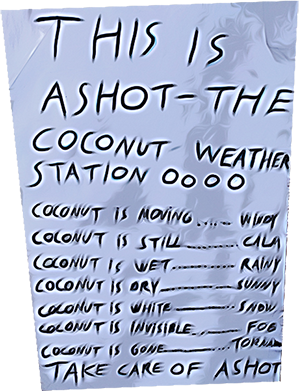 THIS IS
ASHOT-THE
COCONUT WEATHER
STATION OOOO
COCONUT IS MOVING...... WINDY
COCONUT IS STILL........ CALM
COCONUT IS WET............ RAINY
COCONUT IS DRY........... SUNNY
COCONUT IS WHITE......... SNOW
COCONUT IS INVISIBLE...... FOG
COCONUT IS GONE......... TORNAD
TAKE CARE OF ASHOT